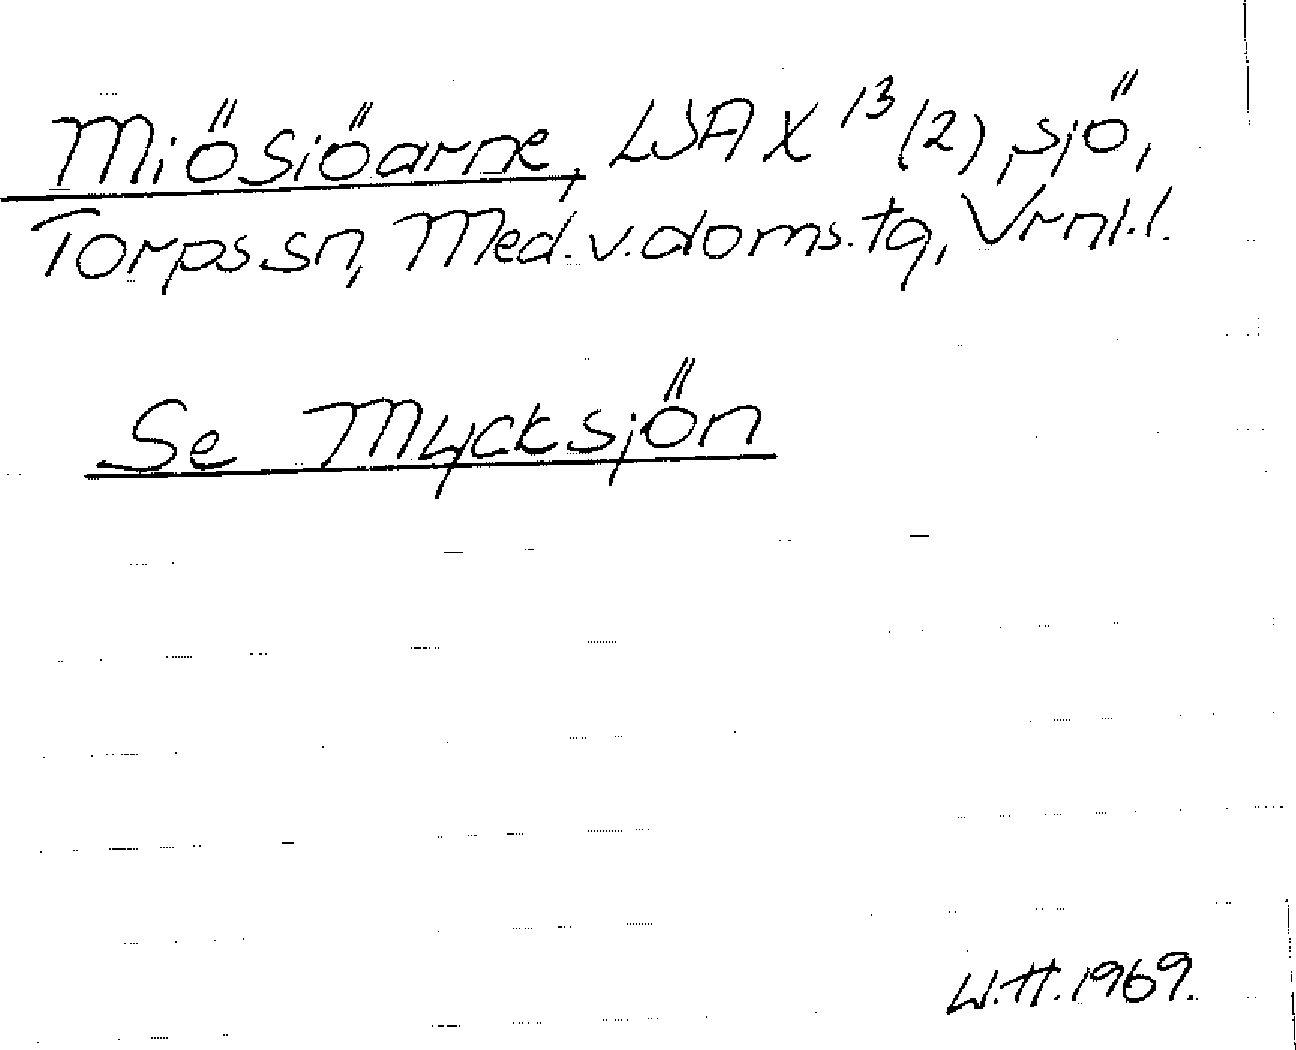 Miösiöarne, LSA X 13 (2), sjö,
Torps sn, Med. v. doms. tg, Vrnl. l.
Se Mycksjön
W.H. 1969.